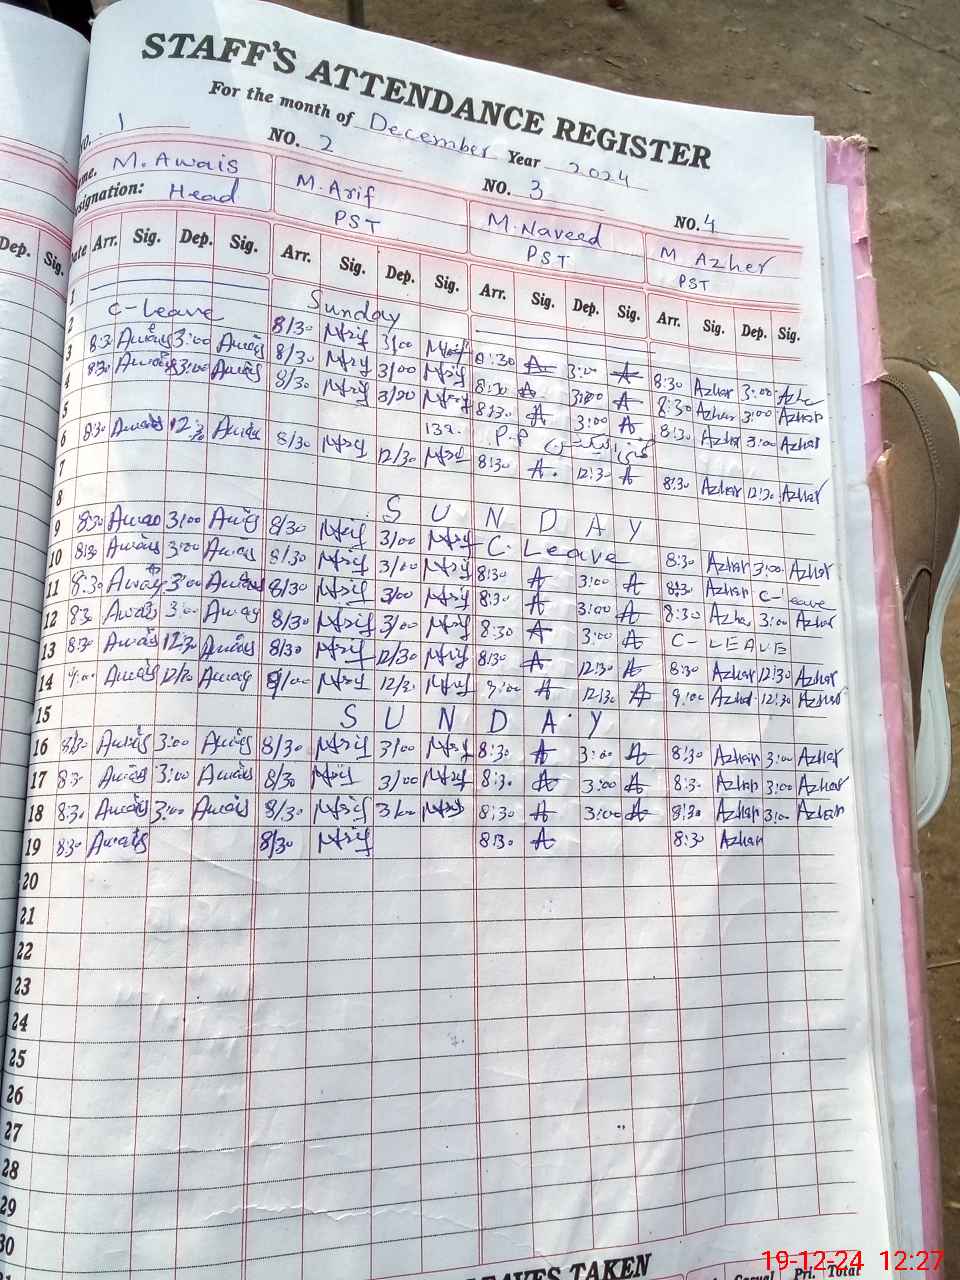 STAFF'S ATTENDANCE REGISTER
For the month of December Year 2024
NO. 1 NO. 2 NO. 3 NO. 4
M. Awais M. Arif M. Naveed M Azher
signation: Head PST PST PST
Dep. Sig.
Arr. Sig. Dep. Sig. Arr. Sig. Dep. Sig. Arr. Sig. Dep. Sig. Arr. Sig. Dep. Sig.
1 Sunday
2 C-Leave 8/30 Arif 3/00
3 8:30 Awais 3:00 Awais 8/30 3/00 8:30 A 3:00 A 8:30 Azhar 3:00 Azhar
4 8:30 Awais 3:00 Awais 8/30 8:30 A 3:00 A 8:30 Azhar 3:00 Azhar
5 P.P 8:30 A 3:00 A 8:30 Azhar 3:00 Azhar
6 8:30 Awais 12:30 Awais 8/30 12/30 8:30 A 12:30 A 8:30 Azhar 12:30 Azhar
7
8 SUNDAY
9 8:30 Awais 3:00 Awais 8/30 Arif 3/00 Arif C. Leave 8:30 Azhar 3:00 Azhar
10 8:30 Awais 3:00 Awais 8/30 Arif 3/00 Arif 8:30 A 3:00 A 8:30 Azhar C-leave
11 8:30 Awais 3:00 Awais 8/30 Arif 3/00 Arif 8:30 A 3:00 A 8:30 Azhar 3:00 Azhar
12 8:30 Awais 3:00 Awais 8/30 Arif 3/00 Arif 8:30 A 3:00 A C-LEAVE
13 8:30 Awais 12:30 Awais 8/30 Arif 12/30 Arif 8:30 A 12:30 A 8:30 Azhar 12:30 Azhar
14 9:00 Awais 12/30 Awais 9/00 Arif 12/30 Arif 9:00 A 12:30 A 9:00 Azhar 12:30 Azhar
15 SUNDAY
16 8:30 Awais 3:00 Awais 8/30 Arif 3/00 Arif 8:30 A 3:00 A 8:30 Azhar 3:00 Azhar
17 8:30 Awais 3:00 Awais 8/30 Arif 3/00 Arif 8:30 A 3:00 A 8:30 Azhar 3:00 Azhar
18 8:30 Awais 3:00 Awais 8/30 Arif 3/00 Arif 8:30 A 3:00 A 8:30 Azhar 3:00 Azhar
19 8:30 Awais 8/30 Arif 8:30 A 8:30 Azhar
20
21
22
23
24
25
26
27
28
29
30
LEAVES TAKEN
Casual Pri. Total
19-12-24 12:27